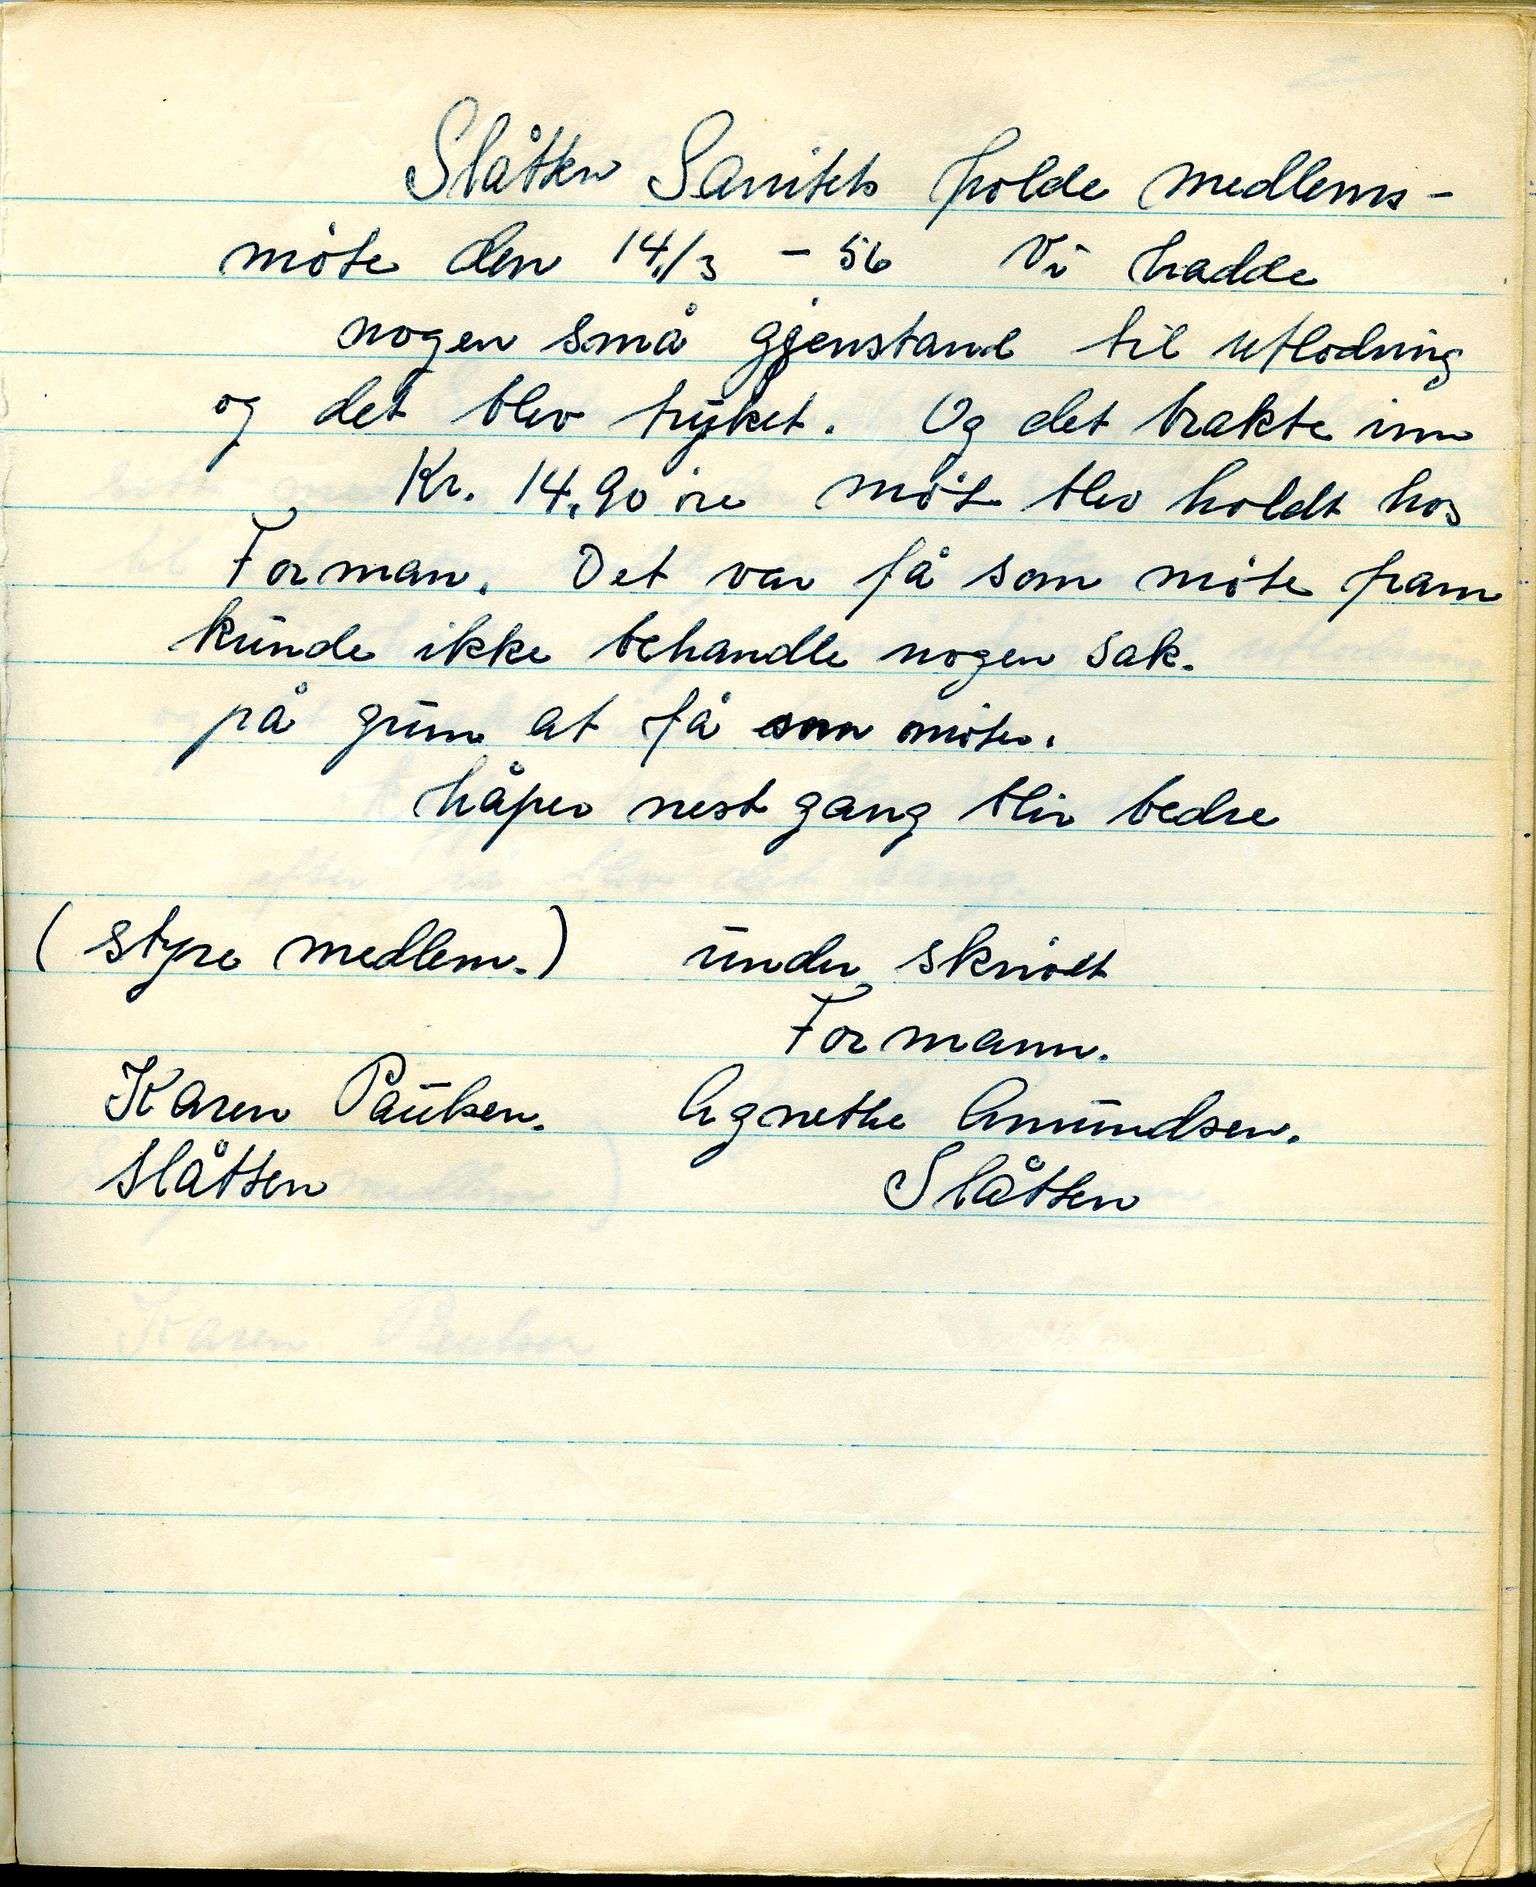 Slåtten Sanitets holde medlems-
möte den 14/3 - 56 Vi hadde
nogen små gjenstand til utlodning
og det blev trÿket. Og det brakte inn
Kr. 14,90 öre möt blev holdt hos
Forman. Det var få som möte fram
kunde ikke behandle nogen sak.
på grun at få som möter.
håper nest gang blir bedre
(styre medlem.) under skrivet
Formann.
Karen Paulsen. Agnethe Amundsen.
Slåtten Slåtten